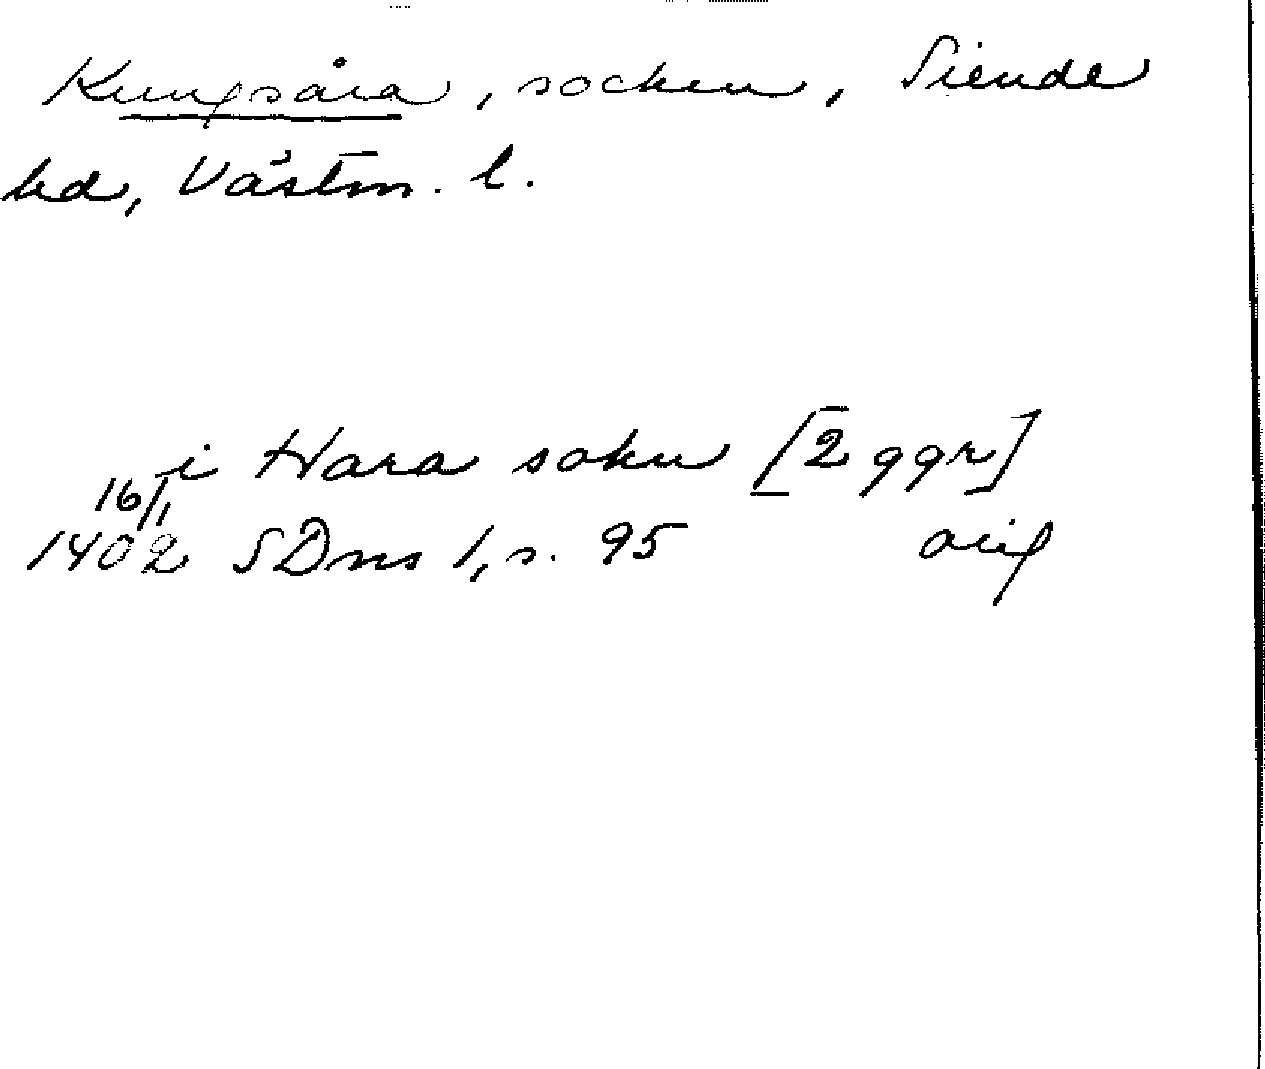 Kungsåra, socken, Siende
hd, Västm. l.
i Hara sokn [2 ggr]
16/1
1402 SDns 1, s. 95 orig